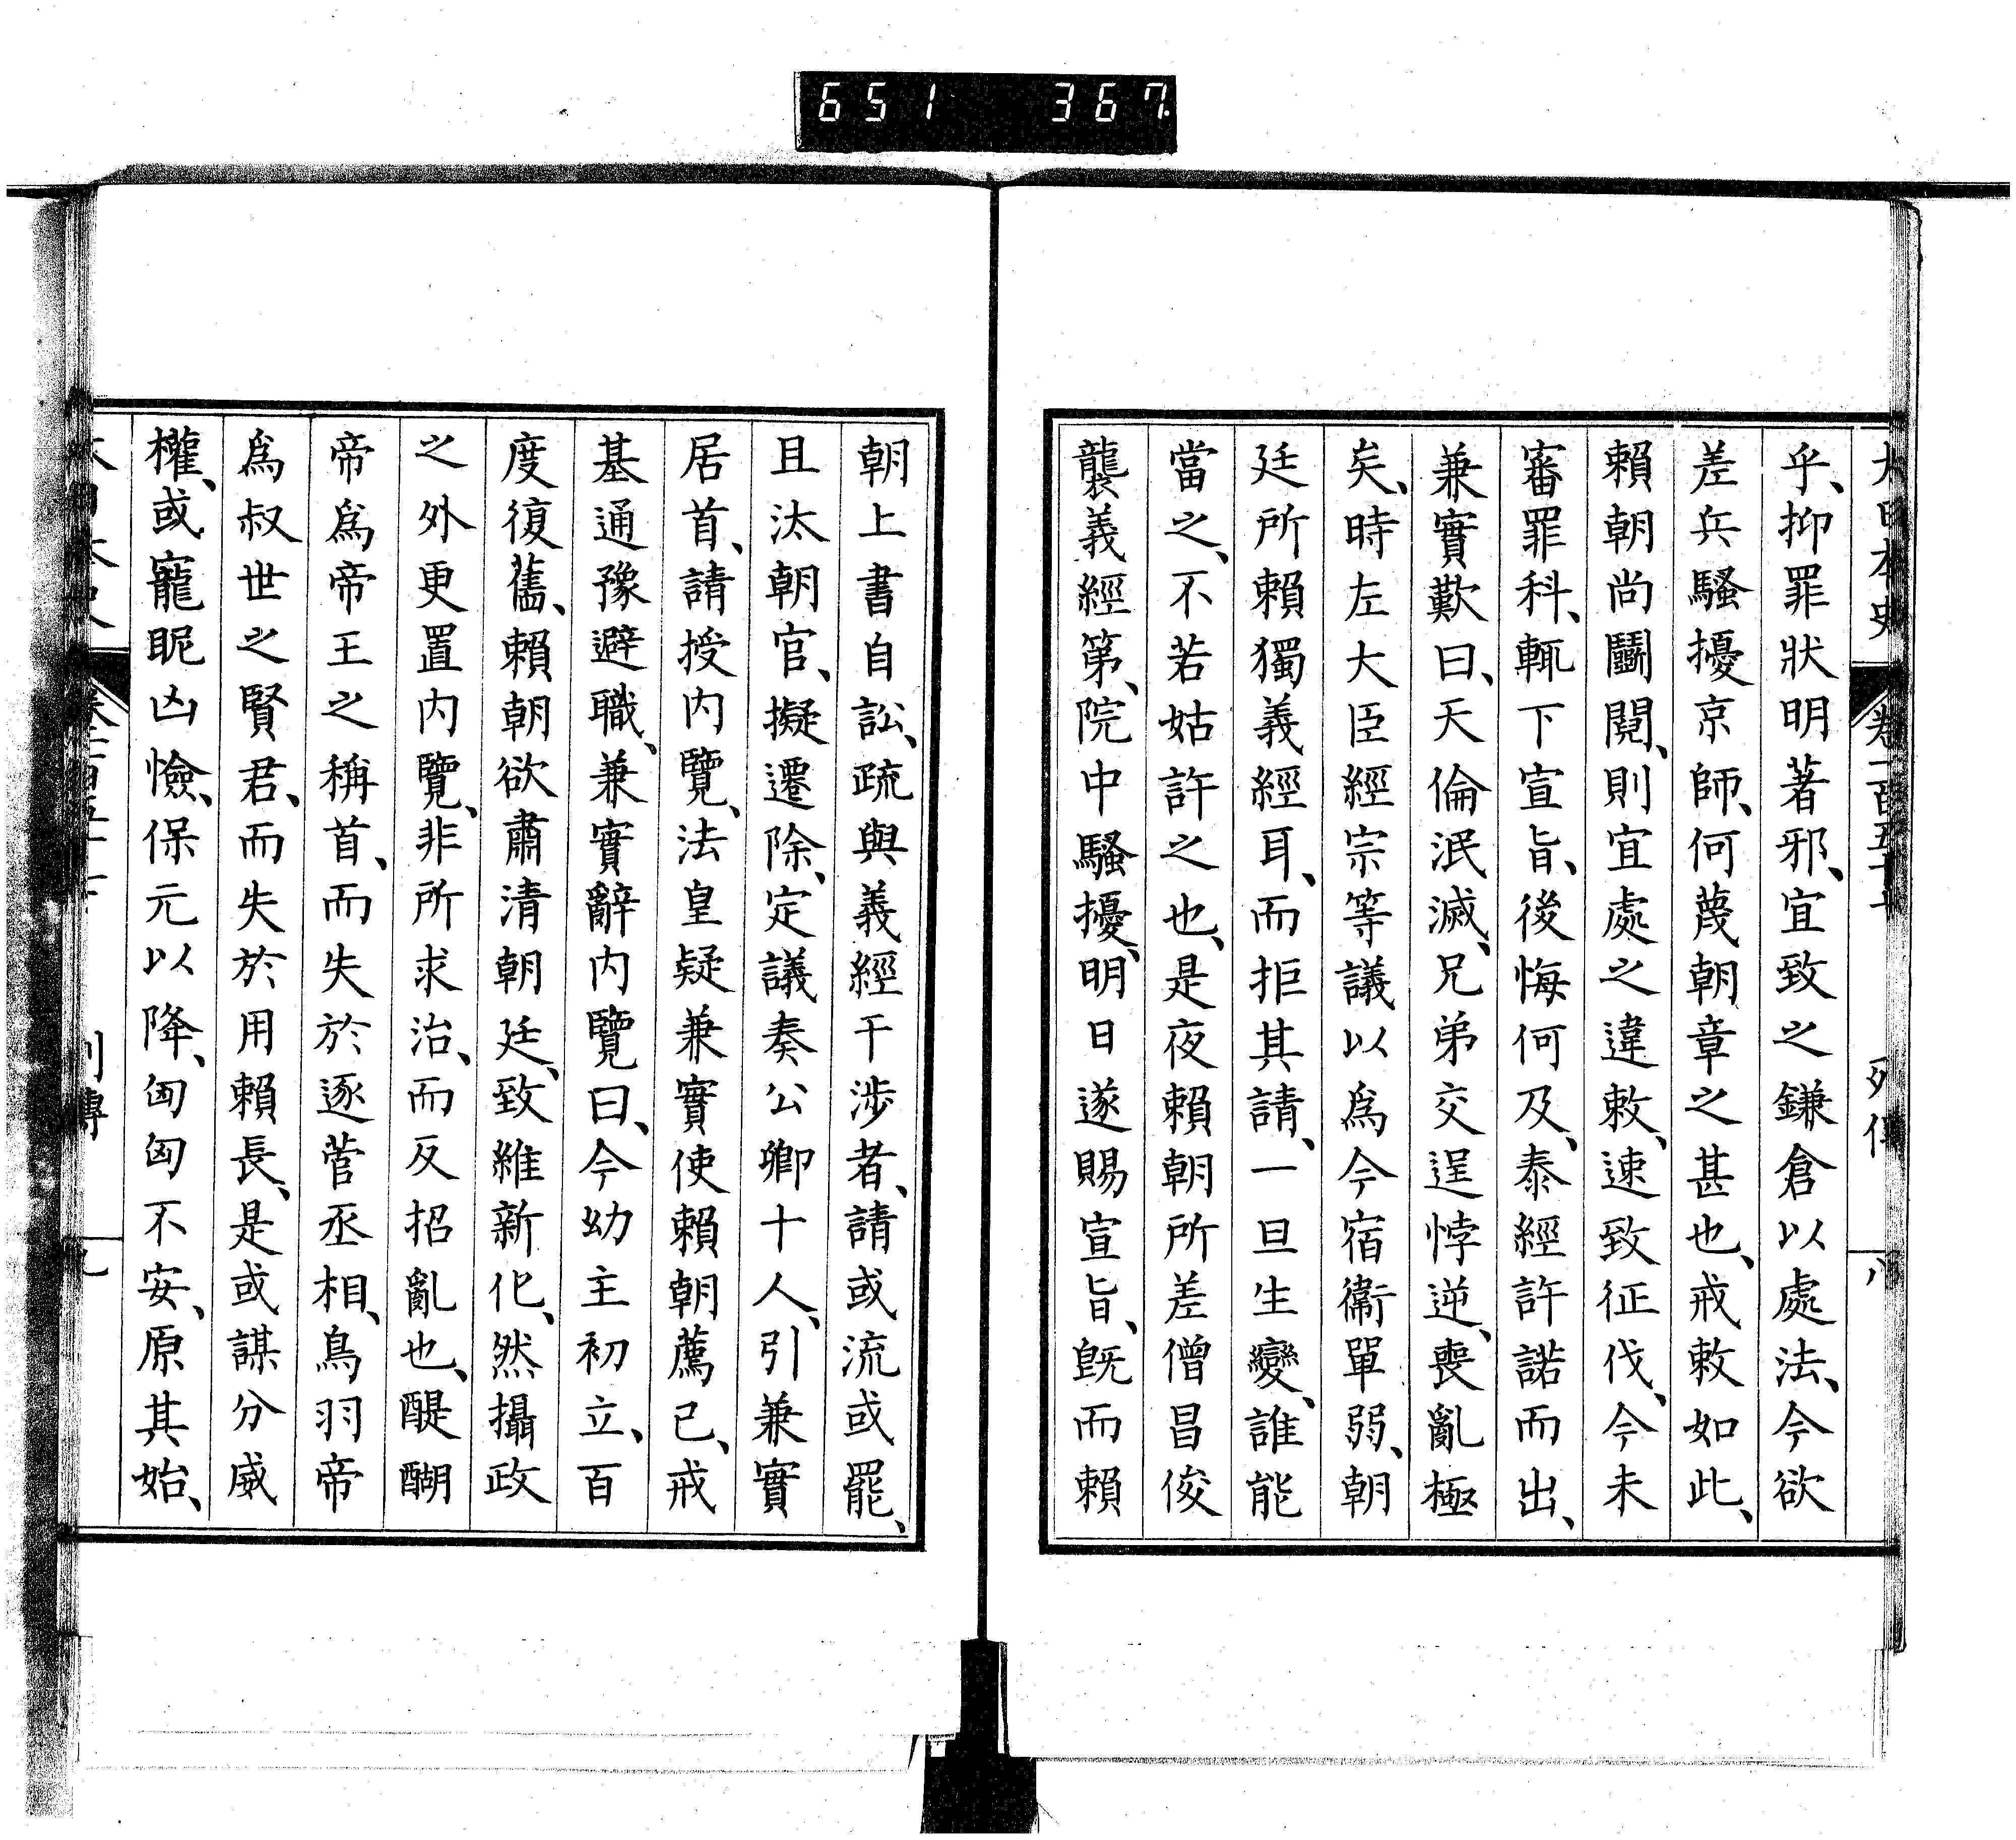 651 367
大日本史 卷一百五十 列傳 八
乎、抑罪狀明著邪、宜致之鎌倉以處法、今欲
差兵騷擾京師、何蔑朝章之甚也、戒敕如此、
賴朝尚鬬鬩、則宜處之違敕、速致征伐、今未
審罪科、輒下宣旨、後悔何及、泰經許諾而出、
兼實歎曰、天倫泯滅、兄弟交逞悖逆、喪亂極
矣、時左大臣經宗等議以爲今宿衞單弱、朝
廷所賴獨義經耳、而拒其請、一旦生變、誰能
當之、不若姑許之也、是夜賴朝所差僧昌俊
襲義經第、院中騷擾、明日遂賜宣旨、旣而賴
朝上書自訟、疏與義經干涉者、請或流或罷、
且汰朝官、擬遷除、定議奏公卿十人、引兼實
居首、請授內覽、法皇疑兼實使賴朝薦己、戒
基通豫避職、兼實辭內覽曰、今幼主初立、百
度復舊、賴朝欲肅清朝廷、致維新化、然攝政
之外更置內覽、非所求治、而反招亂也、醍醐
帝爲帝王之稱首、而失於逐菅丞相、鳥羽帝
爲叔世之賢君、而失於用賴長、是或謀分威
權、或寵昵凶憸、保元以降、匈匈不安、原其始、
日本史 列傳 九